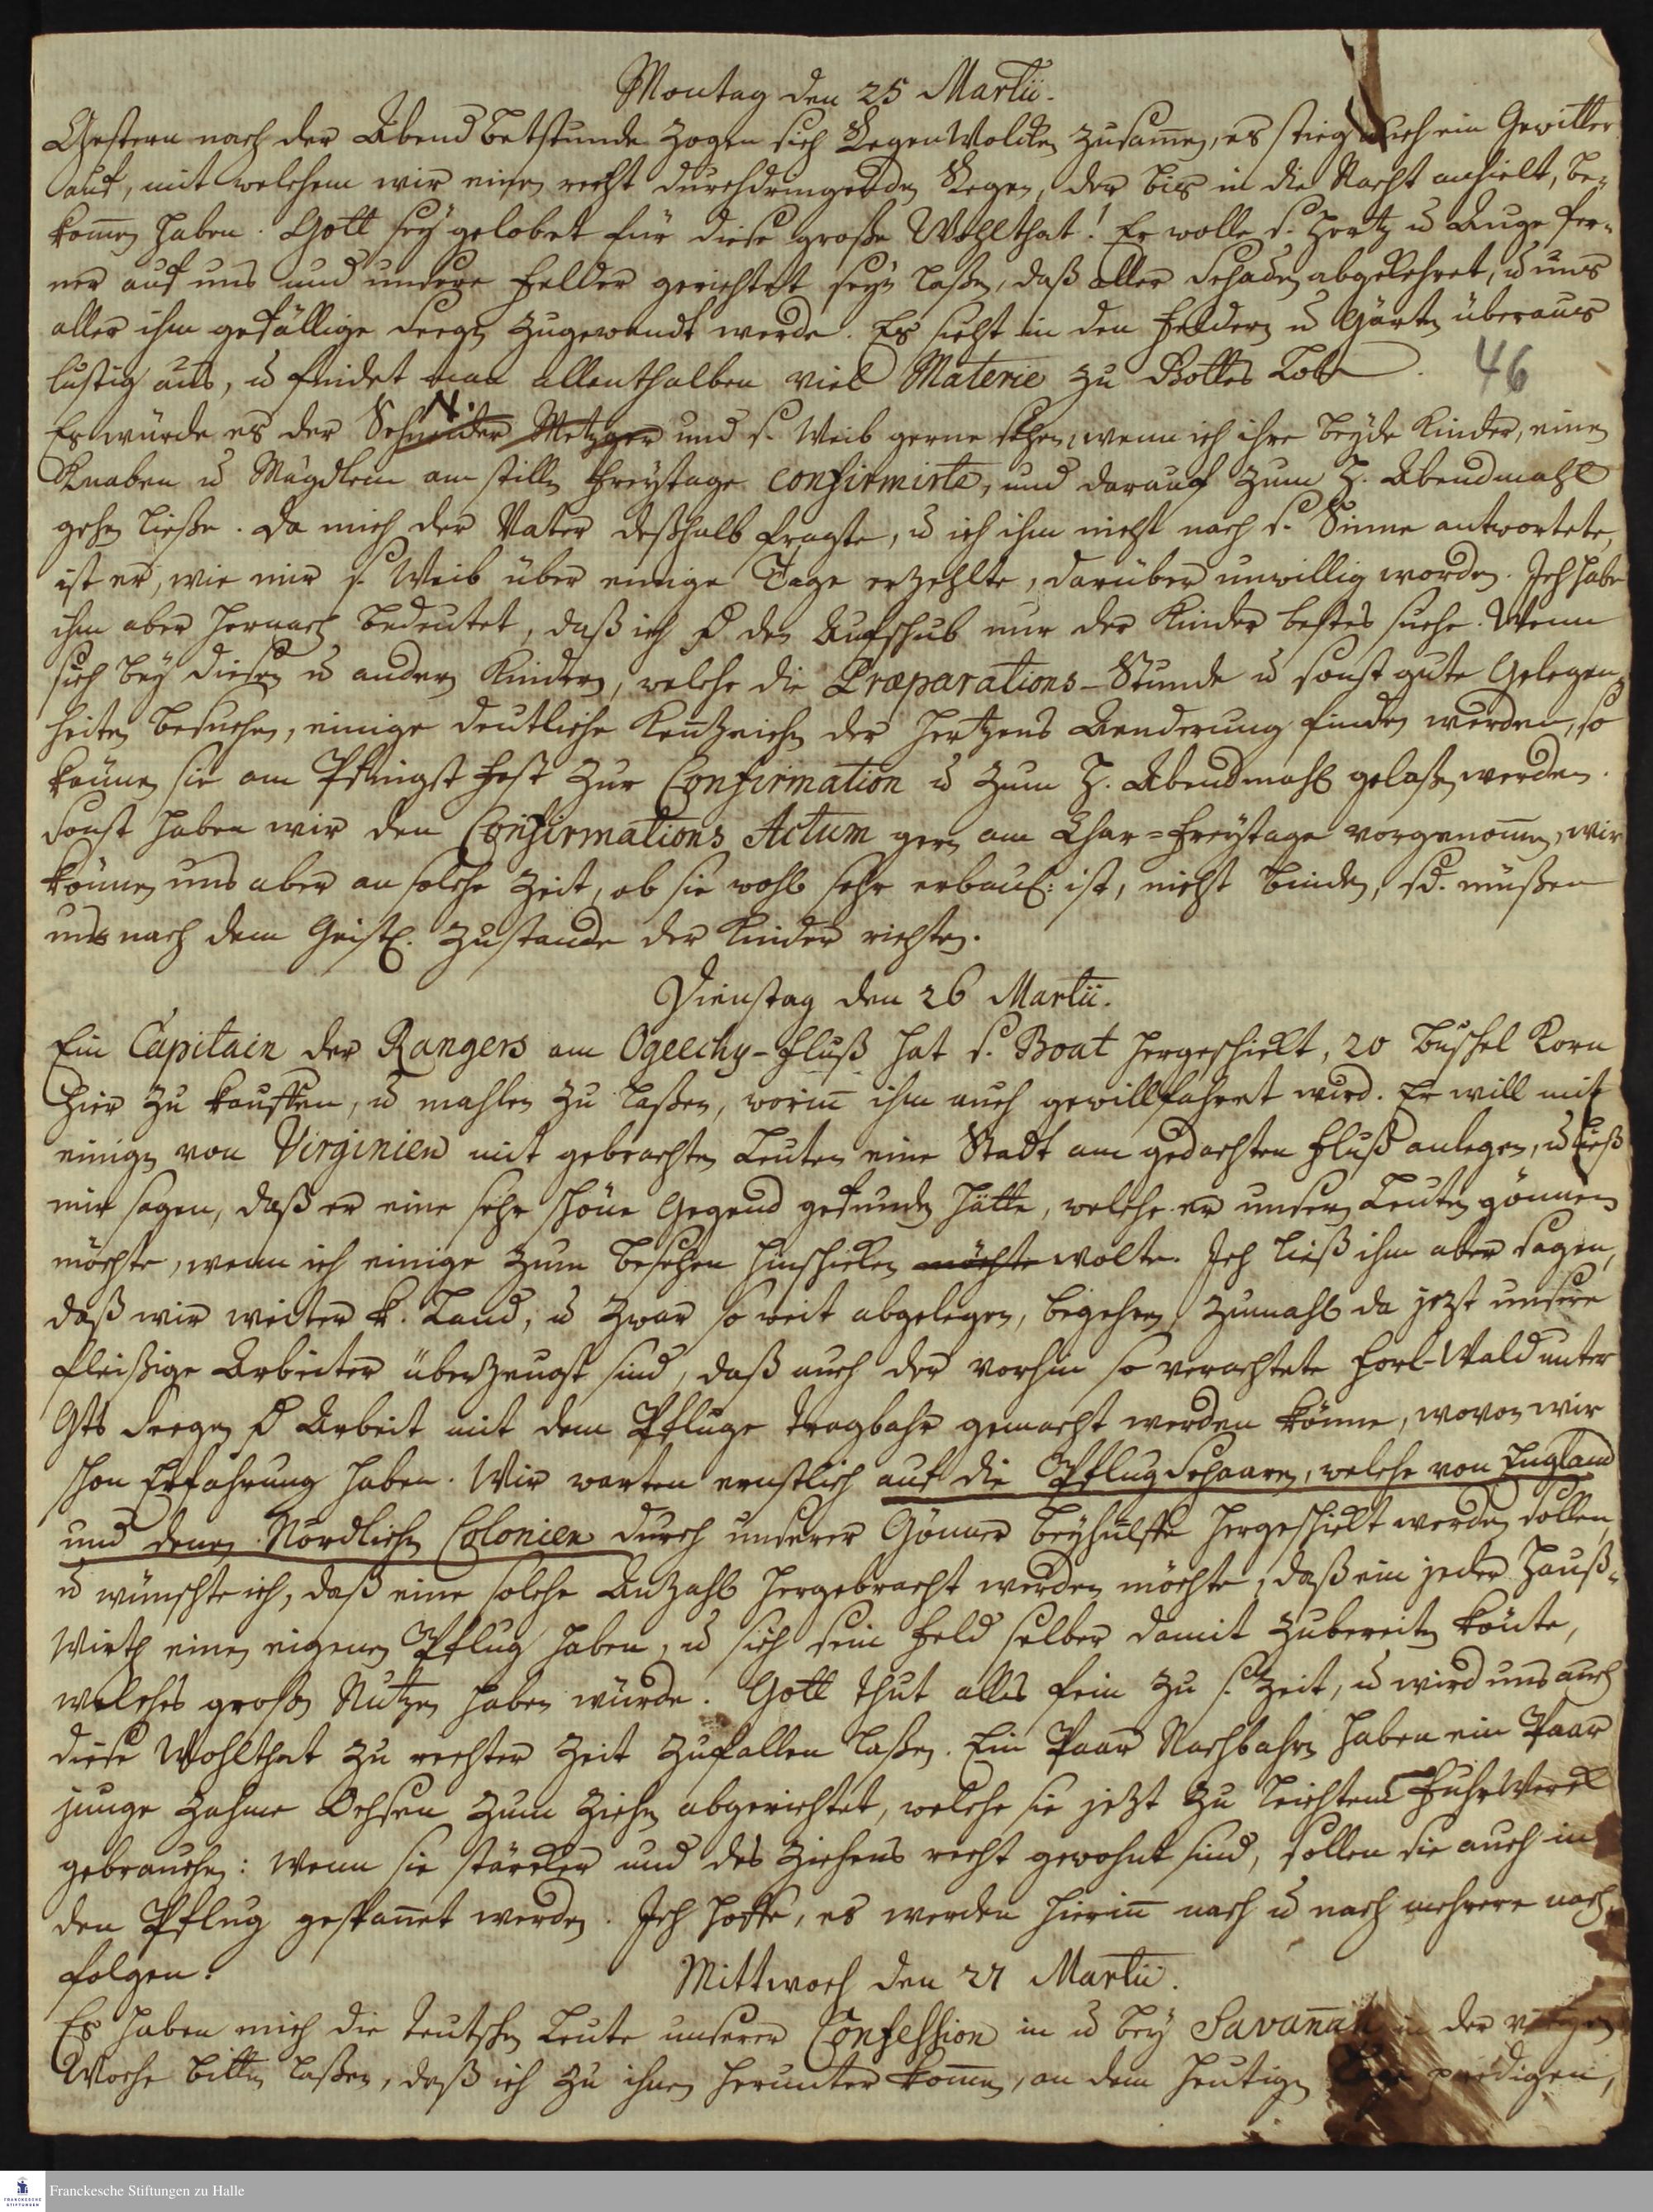 Montag den 25 Martii.
Gestern nach der Abend Betstunde zogen sich RegenWolken zusam̅en, es stieg auch ein Gewitter
auf, mit welchem wir einen recht durchdringenden Regen, der bis in die Nacht anhielt, be-
kom̅en haben. Gott sey gelobet für diese große Wohlthat! Er wolle s. Hertz u Auge fer-
ner auf uns und unsere Felder gerichtet seyn laßen, daß aller Schaden abgekehret, u uns
aller ihm gefällige Seegen zugewendt werde. Es sieht in den Feldern u Gärten überaus
lustig aus, u findet man allenthalben viel Materie zu Gottes Lobe.
46
N.
Es würde es der Schneider Metzger und s. Weib gerne sehen, wenn ich ihre beyde Kinder, einen
Knaben u Mägdlein am stillen Freytage confirmirte, und darauf zum H. Abendmahl
gehen ließe. Da mich der Vater deßhalb fragte, u ich ihm nicht nach s. Sinne antwortete,
ist er, wie mir s. Weib über einige Tage erzehlte, darüber unwillig worden. Ich habe
ihm aber hernach bedeutet, daß ich d den Aufschub nur der Kinder bestes suche. Wenn
sich bey diesen u andern Kindern, welche die Præparations-Stunde u sonst gute Gelegen-
heiten besuchen, einige deutliche Ken̅zeichen der Hertzens Aenderung finden werden, so
können sie am Pfingst Fest zur Confirmation u zum H. Abendmahl gelaßen werden.
Sonst haben wir den Confirmations Actum gern am Char-Freytage vorgenom̅en, wir
können uns aber an solche Zeit, ob sie wohl sehr erbaul: ist, nicht binden, sd. müßen
uns nach dem Geistl. Zustande der Kinder richten.
Dienstag den 26 Martii.
Ein Capitain der Rangers am Ogeechy-Fluß hat s. Boat hergeschickt, 20 Buschel Korn
hier zu kauffen, u mahlen zu laßen, worin̅ ihm auch gewillfahret wird. Er will mit
einigen von Virginien mit gebrachten Leuten eine Stadt am gedachten Fluß anlegen, u ließ
mir sagen, daß er eine sehr schöne Gegend gefunden hätte, welche er unsern Leuten gönnen
möchte, wenn ich einige zum Besehen hinschicken möchte wolte. Ich ließ ihm aber sagen,
daß wir weiter k. Land, u zwar so weit abgelegen, begehren, zumahl da jetzt unsere
fleißige Arbeiter überzeugt sind, daß auch der vorhin so verachtete Forl-Wald unter
Gts Seegen d Arbeit mit dem Pfluge tragbahr gemacht werden könne, wovon wir
schon Erfahrung haben. Wir warten ernstlich auf die PflugSchaaren, welche von England
und denen Nördlichen Colonien durch unserer Gönner Beyhülffe hergeschickt werden sollen,
u wünschte ich, daß eine solche Anzahl hergebracht werden möchte, daß ein jeder Hauß-
Wirth einen eigenen Pflug haben, u sich sein Feld selber damit zubereiten kön̅te,
welches großen Nutzen haben würde. Gott thut alles fein zu s. Zeit, u wird uns auch
diese Wohlthat zu rechter Zeit zufallen laßen. Ein Paar Nachbahrn haben ein Paar
junge zahme Ochsen zum Ziehen abgerichtet, welche sie jetzt zu leichtem FuhrWerck
gebrauchen: wenn sie stärcker und des Ziehens recht gewohnt sind, sollen sie auch in
den Pflug gespan̅et werden. Ich hoffe, es werden hierin̅ nach u nach mehrere nach-
folgen.
Mittwoch den 27 Martii.
Es haben mich die teutschen Leute unserer Confession in u bey Savan̅ah in der
Woche bitten laßen, daß ich zu ihnen herunter kom̅en, an dem heutigen predigen,
Franckesche Stiftungen zu Halle